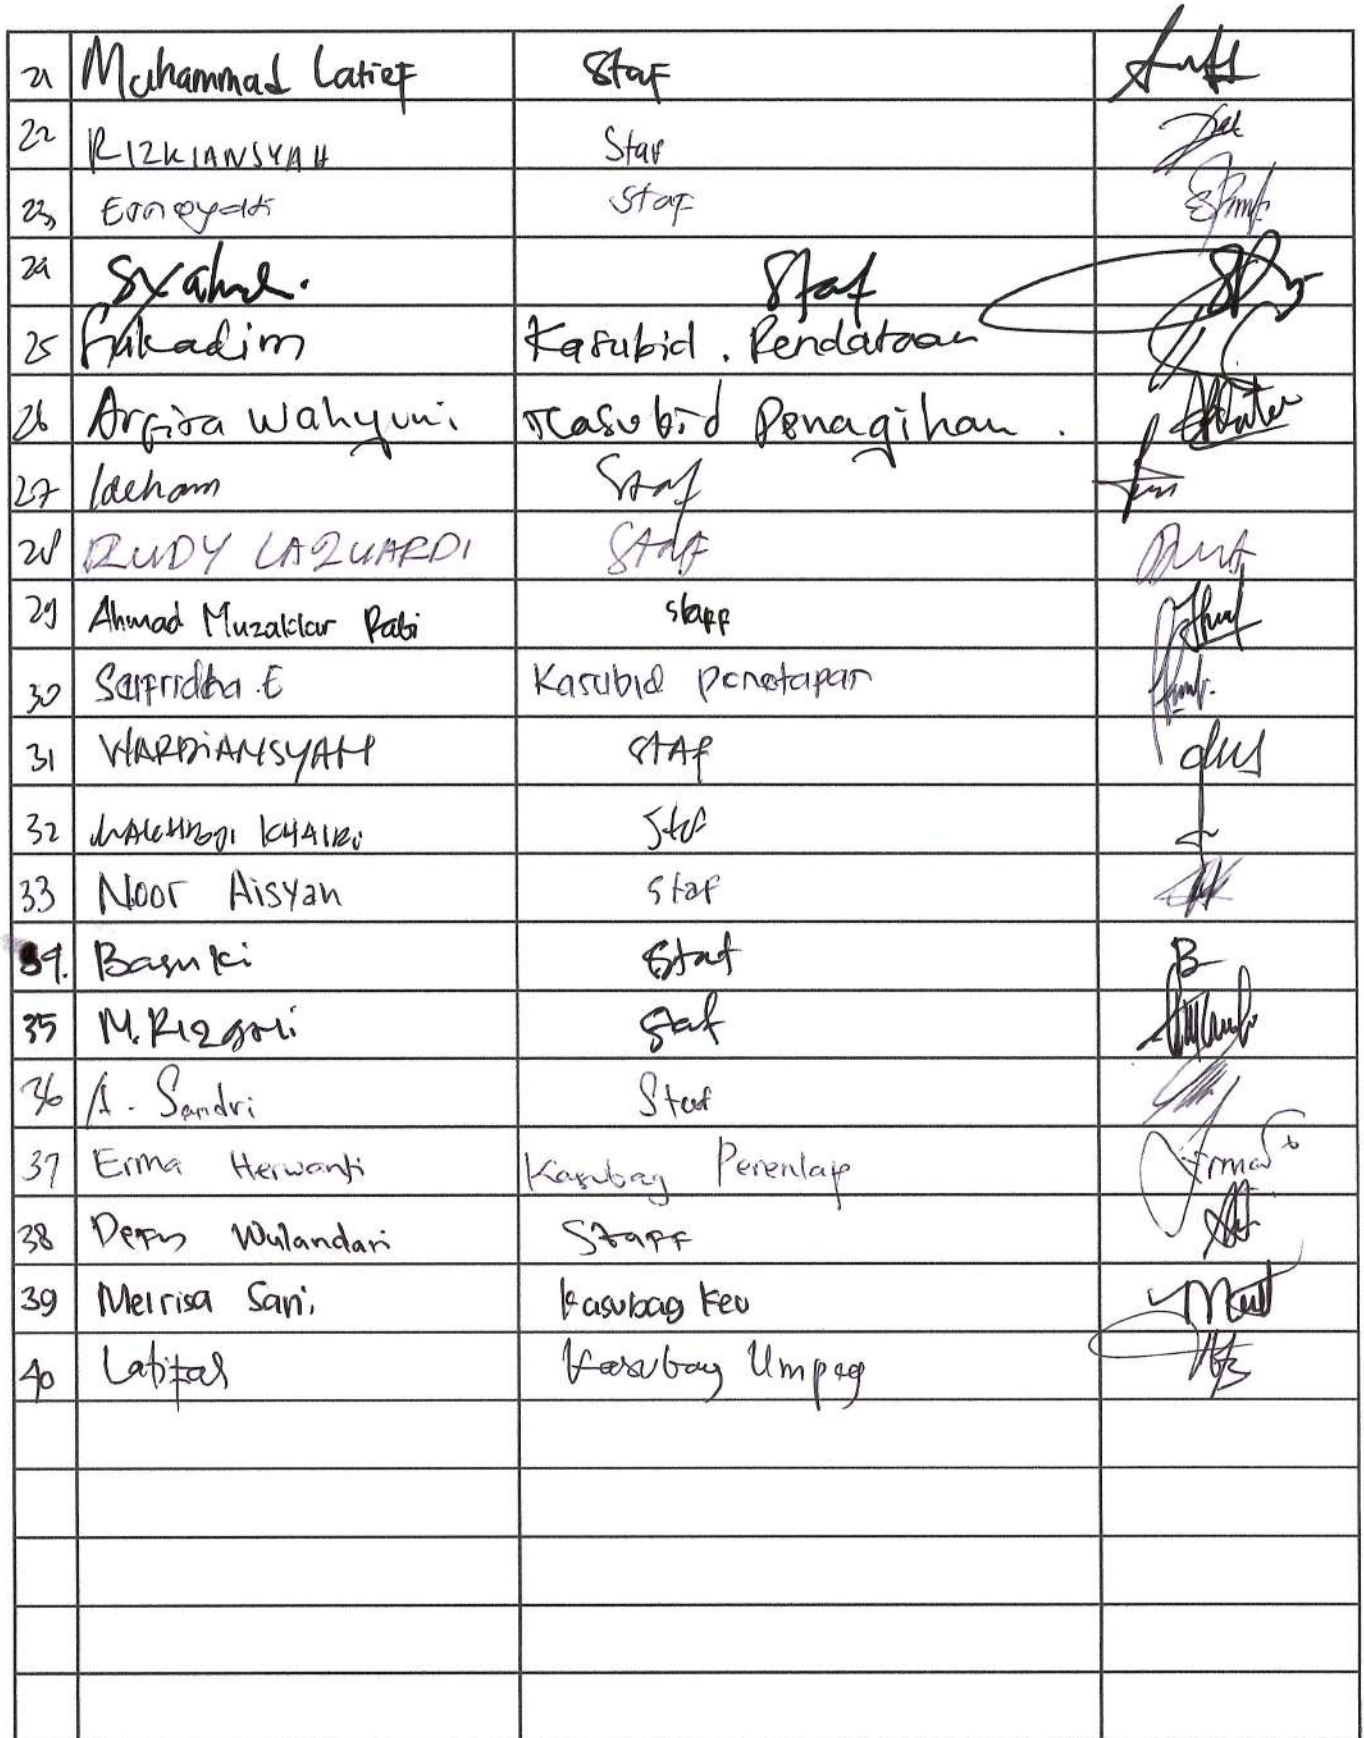 21 Muhammad Latief Staf
22 RIZKIANSYAH Staf
23, Ernayati Staf
24 Staf
25 Sukadim Kasubid. Pendataan
26 Arfira Wahyuni. Kasubid Penagihan.
27 Ideham Staf
28 RUDY LAZUARDI STAF
29 Ahmad Muzakkar Rabi staff
30 Safridha.E Kasubid penetapan
31 WARDIANSYAH STAF
32 KHAIRI Staf
33 Noor Aisyah staf
34. Basuki Staf
35 M. Rizqoli Staf
36 A. Sandri Staf
37 Erma Herwanti Kasubag Perenlap
38 Wulandari Staff
39 Meirisa Sari, Kasubag Keu
40 Latifah Kasubag Umpeg